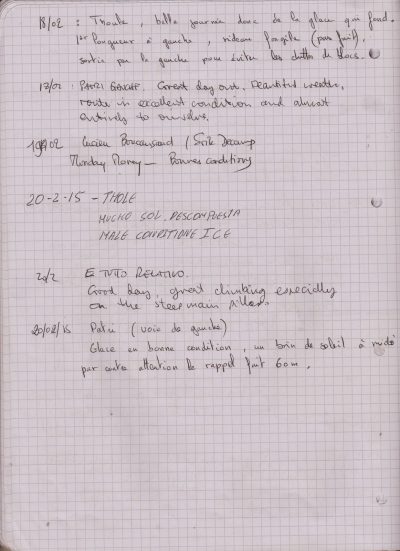 18/02 : Thoule, belle journée donc de la glace qui fond.
1ère longueur à gauche, rideau fragile (pas fait),
sortie par la gauche pour éviter les chutes de blocs.
17/02 : PATRI GAUCHE. Great day out. Beautiful weather,
route in excellent condition and almost
entirely to ourselves.
19/02 Lucien /
Monday Money – Bonnes conditions
20-2-15 – THOLE
MUCHO SOL. DESCOMPUESTA
MALE CONDITIONE ICE
20/2 E TUTO RELATIVO.
Good day, great climbing especially
on the steep main pillar.
20/02/15 Patri (voie de gauche)
Glace en bonne condition, un brin de soleil à midi
par contre attention le rappel fait 60m.